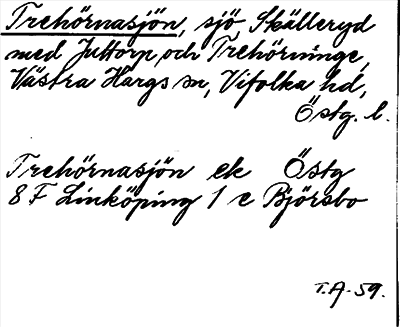 Trehörnasjön, sjö Skälleryd
med Juttorp och Trehörninge,
Västra Hargs sn, Vifolka hd,
Östg. l.
Trehörnasjön ek Östg
8 F Linköping 1 e Björsbo
T.A. 59.